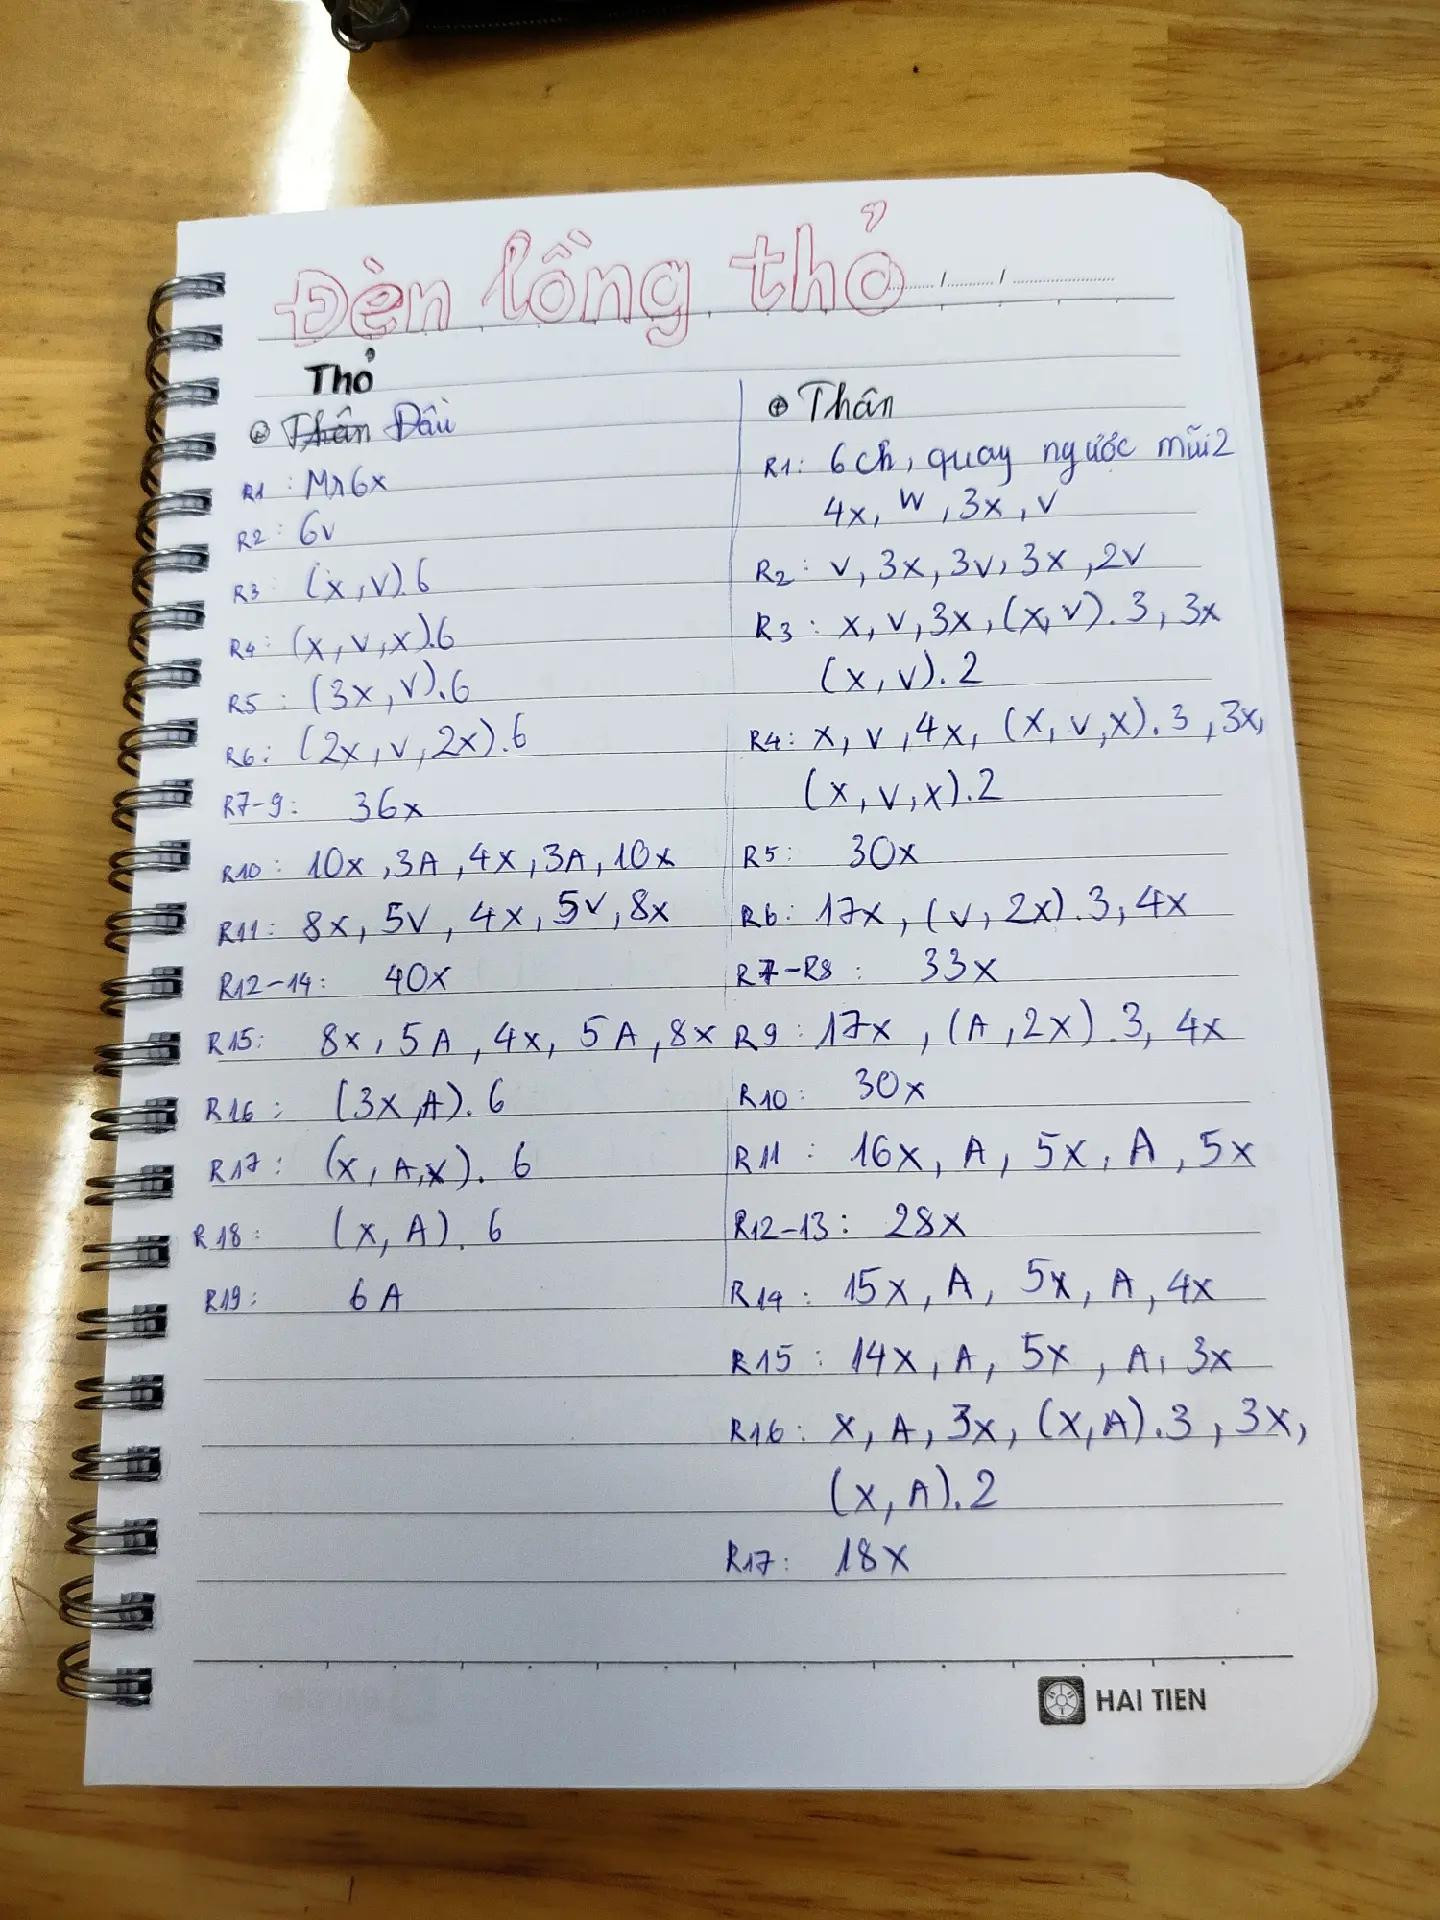 Đèn lồng thỏ
Thỏ
Thân Đầu
R1 : Mr6x
R2 : 6v
R3 : (x,v).6
R4 : (x,v,x).6
R5 : (3x,v).6
R6 : (2x,v,2x).6
R7-9 : 36x
R10 : 10x,3A,4x,3A,10x
R11 : 8x,5v,4x,5v,8x
R12-14 : 40x
R15 : 8x,5A,4x,5A,8x
R16 : (3x,A).6
R17 : (x,A,x).6
R18 : (x,A).6
R19 : 6A
⊕ Thân
R1 : 6ch, quay ngược mũi2
4x, W, 3x, v
R2 : v, 3x, 3v, 3x, 2v
R3 : x, v, 3x, (x,v).3, 3x
(x,v).2
R4 : x, v, 4x, (x,v,x).3, 3x,
(x,v,x).2
R5 : 30x
R6 : 17x, (v, 2x).3, 4x
R7-R8 : 33x
R9 : 17x, (A,2x).3, 4x
R10 : 30x
R11 : 16x, A, 5x, A, 5x
R12-13 : 28x
R14 : 15x, A, 5x, A, 4x
R15 : 14x, A, 5x, A, 3x
R16 : x, A, 3x, (x,A).3, 3x,
(x,A).2
R17 : 18x
HAI TIEN